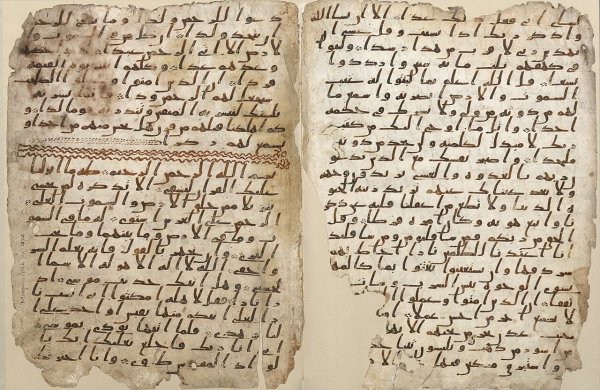 انى فعل ذلك غدا الا ان يشا الله
واذكر ربك اذا نسيت وقل عسى ان
يهدين ربى لاقرب من هذا رشدا ولبثوا
فى كهفهم ثلث مائة سنين وازدادوا
تسعا قل الله اعلم بما لبثوا له غيب
السموت والارض ابصر به واسمع ما
لهم من دونه من ولى ولا يشرك فى حكمه
احدا واتل ما اوحى اليك من كتب
ربك لا مبدل لكلمته ولن تجد من دونه
ملتحدا واصبر نفسك مع الذين يدعون
ربهم بالغدوة والعشى يريدون وجهه
ولا تعد عيناك عنهم تريد زينة الحيوة
الدنيا ولا تطع من اغفلنا قلبه عن ذكرنا
واتبع هويه وكان امره فرطا وقل
الحق من ربكم فمن شا فليومن ومن شا فليكفر
انا اعتدنا للظلمين نارا احاط بهم
سرادقها وان يستغيثوا يغاثوا بما كالمهل
يشوى الوجوه بئس الشراب وسات مر
تفقا ان الذين امنوا وعملوا
لا نضيع اجر من احسن عملا
جنت عدن تجرى من تحتهم الا
من اساور من ذهب ويلبسون ثيابا
واستبرق متكين فيها على الا
دعوا للرحمن ولدا وما ينبغى
للرحمن ان يتخذ ولدا ان كل من فى السموت و
الارض الا اتى الرحمن عبدا لقد احصيهم
وعدهم عدا وكلهم اتيه يوم القيمة
فردا ان الذين امنوا وعملوا الصلحت
سيجعل لهم الرحمن ودا فانما يسرنه
بلسنك لتبشر به المتقين وتنذر به قوما لدا و
كم اهلكنا قبلهم من قرن هل تحس منهم من احد او
تسمع لهم ركزا
بسم الله الرحمن الرحيم طه ما انزلنا
عليك القران لتشقى الا تذكرة لمن يخشى
تنزيلا ممن خلق الارض والسموت العلى
الرحمن على العرش استوى له ما فى السمو
ت وما فى الارض وما بينهما وما تحت
الثرى وان تجهر بالقول فانه يعلم السر
واخفى الله لا اله الا هو له الاسما
الحسنى وهل اتيك حديث موسى اذ
را نارا فقال لاهله امكثوا انى انست نا
را لعلى اتيكم منها بقبس او اجد على
النار هدى فلما اتيها نودى يموسى
انى انا ربك فاخلع نعليك انك با
لواد المقدس طوى وانا اخترتك